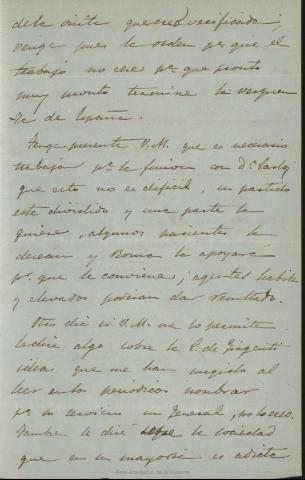 de la visita que creo verificada;
venga pues la orden pª que el
trabajo no cese pª que pronto
muy pronto termine la vergüen
za de España.
Tenga presente V.M. que es necesario
trabajar pª la fusion con Dn Carlos
que esto no es dificil, su partido
esta dividido y una parte la
quiere, algunos parientes la
desean y Roma la apoyará
pª que le conviene; agentes habiles
y elevados podrian dar resultado.
Otro dia si V.M. me lo permite
le dire algo sobre la C. de Girgenti
ideas que me han surgido al
leer en los periodicos nombrar
pª su servicio un General, no lo creo.
Tambien le diré la sociedad
que en su mayoria es adicta
Real Academia de la Historia